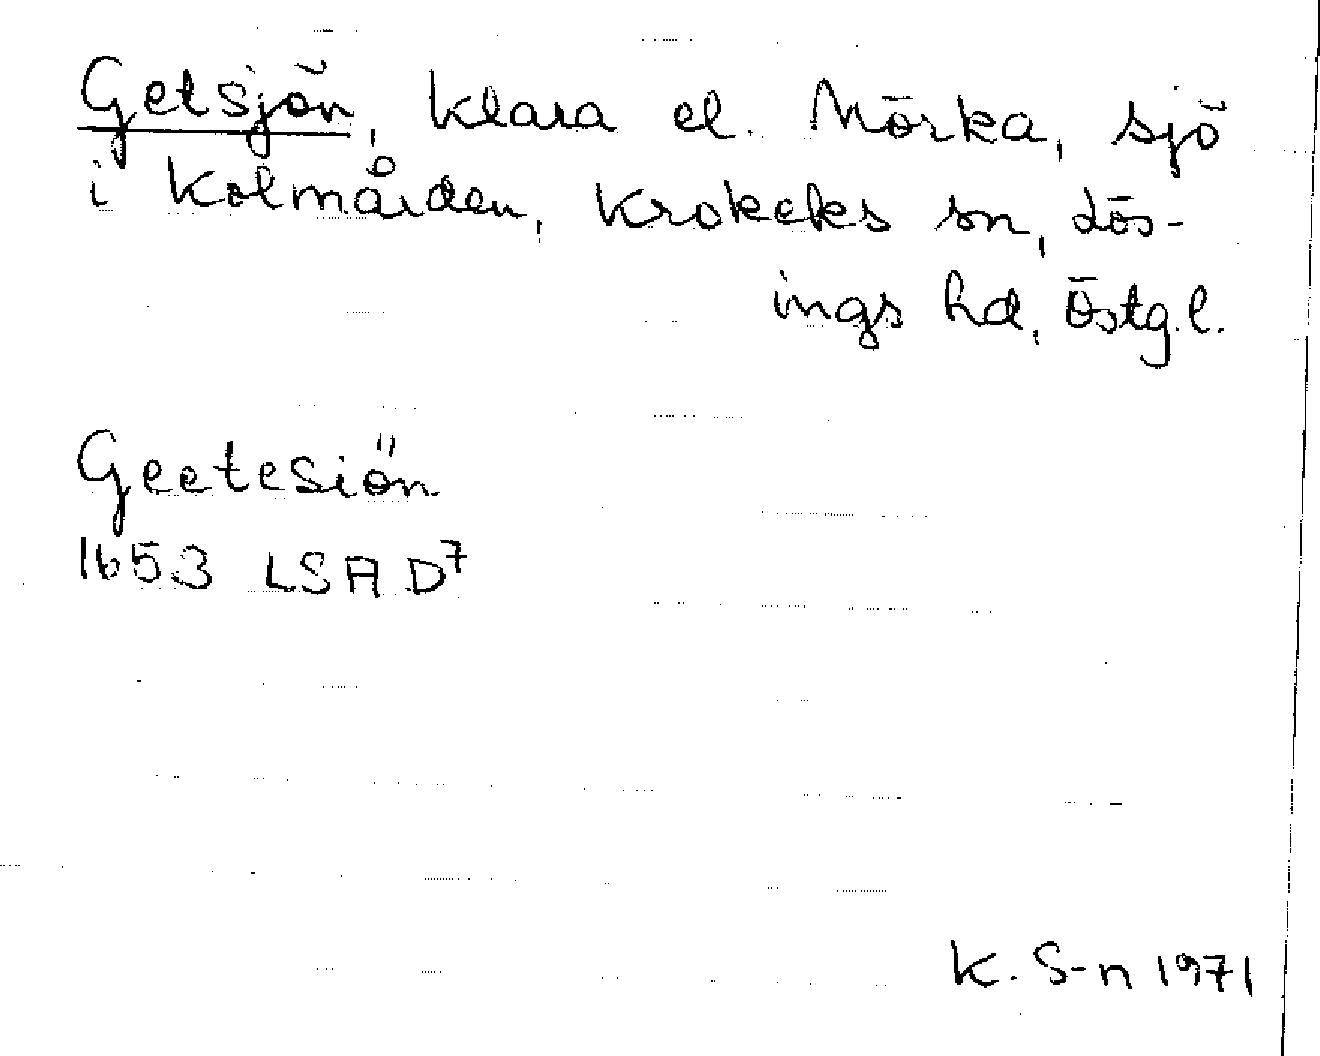 Getsjön, Klara el. Mörka, sjö
i Kolmården, Krokeks sn, Lös-
ings hd, Östg.l.
Geetesiön
1653 LSA D7
K. S-n 1971